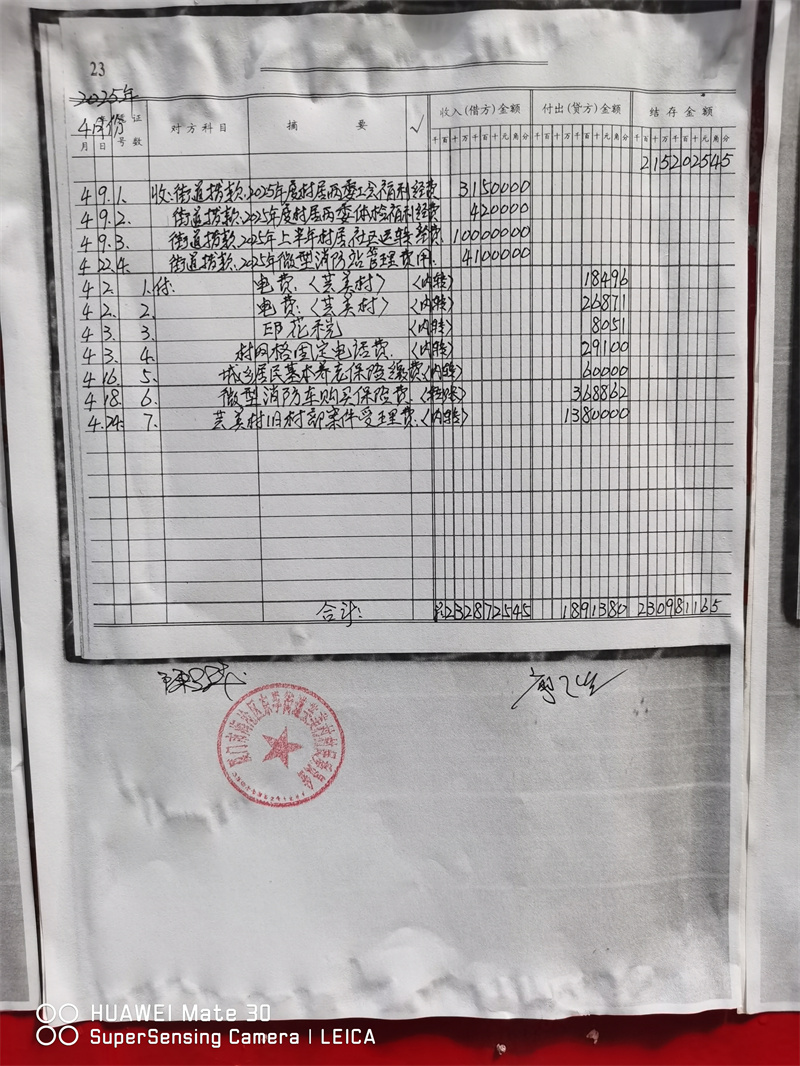 23
2025年
4月份 凭证 对方科目 摘要 √ 收入(借方)金额 付出(贷方)金额 结存金额
月 日 号数 千百十万千百十元角分 千百十万千百十元角分 千百十万千百十元角分
215202545
4 9. 1. 收:街道拨款:2025年度村居两委工会福利经费 3150000
4 9. 2. 街道拨款:2025年度村居两委体检福利经费 420000
4 9. 3. 街道拨款:2025年上半年村居社区运转经费 10000000
4 22. 4. 街道拨款:2025年微型消防站管理费用: 4100000
4 2. 1. 付: 电费:〈芸美村〉 〈内转〉 18496
4 2. 2. 电费:〈芸美村〉 〈内转〉 26871
4 3. 3. 印花税 〈内转〉 8051
4 3. 4. 村网格固定电话费. 〈内转〉 29100
4 16. 5. 城乡居民基本养老保险缴费〈内转〉 60000
4 18. 6. 微型消防车购买保险费.〈转账〉 368862
4 24. 7. 芸美村旧村部案件受理费.〈内转〉 1380000
合计: 232872545 1891380 230981165
HUAWEI Mate 30
SuperSensing Camera | LEICA